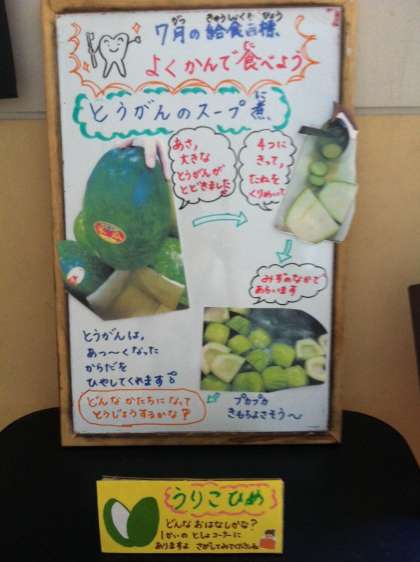 7月の給食目標
がつ きゅうしょくもくひょう
よくかんで食べよう
とうがんのスープ煮
に
あさ、
大きな
とうがんが
とどきました
4つに
きって、
たねを
くりぬいて
みずのなかで
あらいます
とうがんは、
あっ〜くなった
からだを
ひやしてくれます
どんな かたちになって
とうじょうするかな?
プカプカ
きもちよさそう〜
うりこひめ
どんな おはなしかな?
1かいの としょコーナーに
ありますよ さがしてみてくださいね